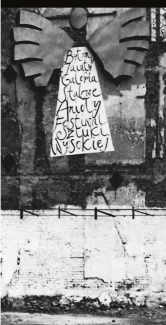 Bytom
Zaułek
Galeria
Stalowe
Anioły
Festiwal
Sztuki
Wysokiej